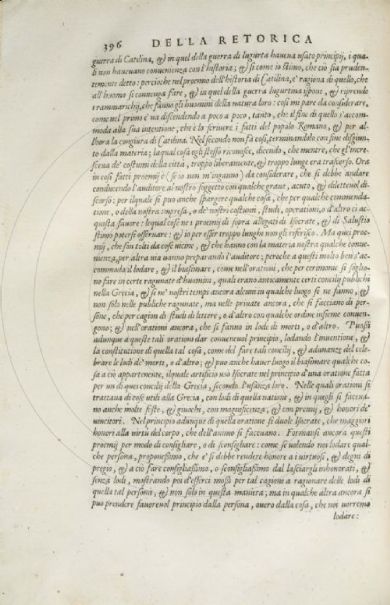 396 DELLA RETORICA
guerra di Catilina, & in quel della guerra di Iugurta haueua usato principij, i qua-
li non haueuano conuenienza con l'historia; & si come io stimo, che ciò sia pruden-
temente detto: percioche nel proemio dell'historia di Catilina, e' ragiona di quello, che
all'huomo si conuenga fare, & in quel della guerra Iugurtina espone, & riprende
che fanno gli huomini della natura loro: cosi mi pare da considerare,
come nel primo e' ua discendendo a poco a poco, tanto, che il fine di quello s'accom-
moda alla sua intentione, che è lo scriuere i fatti del popolo Romano, & per al-
lhora la congiura di Catilina. Nel secondo non fa cosi, terminandolo con fine
to dalla materia; la qual cosa egli stesso riconosce, dicendo, che mentre, che gl'incre-
sceua de' costumi della città, troppo liberamente, & troppo lunge era trascorso. Ora
in cosi fatti proemi è (se io non m'inganno) da considerare, che si debbe andare
conducendo l'auditore al nostro soggetto con qualche graue, acuto, & diletteuol di-
scorso; per il quale si puo anche spargere qualche cosa, che per qualche commenda-
tione, o della nostra impresa, o de' nostri costumi, studi, operationi, o d'altro ci ac-
quisti fauore: la qual cosa ne i proemij di sopra allegati d'Isocrate, & di Salustio
stimo potersi osseruare; & io per esser troppo lunghi non gli riferisco. Ma quei proe-
mij, che son tolti da cose uicine, & che hanno con la materia nostra qualche conue-
nienza, per altra uia uanno preparando l'auditore; perche a questi molto ben s'ac-
commoda il lodare, & il biasimare, come nell'orationi, che per cerimonie si soglio-
no fare in certe ragunate d'huomini, quali erano anticamente certi concilij publichi
nella Grecia, & se ne' nostri tempi ancora ad alcun in qualche luogo si ne fanno, &
non solo nelle publiche ragunate, ma nelle priuate ancora, che si facciano di per-
sone, che per cagion di studi di lettere, o d'altro con qualche ordine insieme conuen-
gono; & nell'orationi ancora, che si fanno in lode di morti, o d'altro. Puossi
adunque a queste tali orationi dar conueneuol principio, lodando l'inuentione, &
la constitutione di quella tal cosa, come del fare tali concilij, & adunanze del cele-
brare le lodi de' morti, o d'altro; & puo anche hauer luogo il biasimare qualche co-
sa a ciò appartenente, il quale artificio usò Isocrate nel principio d'una oratione fatta
per un di quei concilij della Grecia, secondo l'usanza loro. Nelle quali orationi si
trattaua di cose utili alla Grecia, con lodi di quella natione, & in quegli si faceua-
no anche molte feste, & giuochi, con magnificenza, & con premij, & honori de'
uincitori. Nel principio adunque di quella oratione si duole Isocrate, che maggiori
honori alla uirtù del corpo, che dell'animo si facciano. Formansi ancora questi
proemij per modo di consigliare, o di sconsigliare: come se uolendo noi lodare qual-
che persona, proponessimo, che e' si debbe rendere honore a i uirtuosi, & degni di
pregio, & a ciò fare consigliassimo, o sconsigliassimo dal lasciargli inhonorati, &
senza lodi, mostrando poi d'esserci mossi per tal cagione a ragionare delle lodi di
quella tal persona, & non solo in questa maniera; ma in qualche altra ancora si
puo prendere fauoreuol principio dalla persona, ouero dalla cosa, che noi uorremo
lodare: